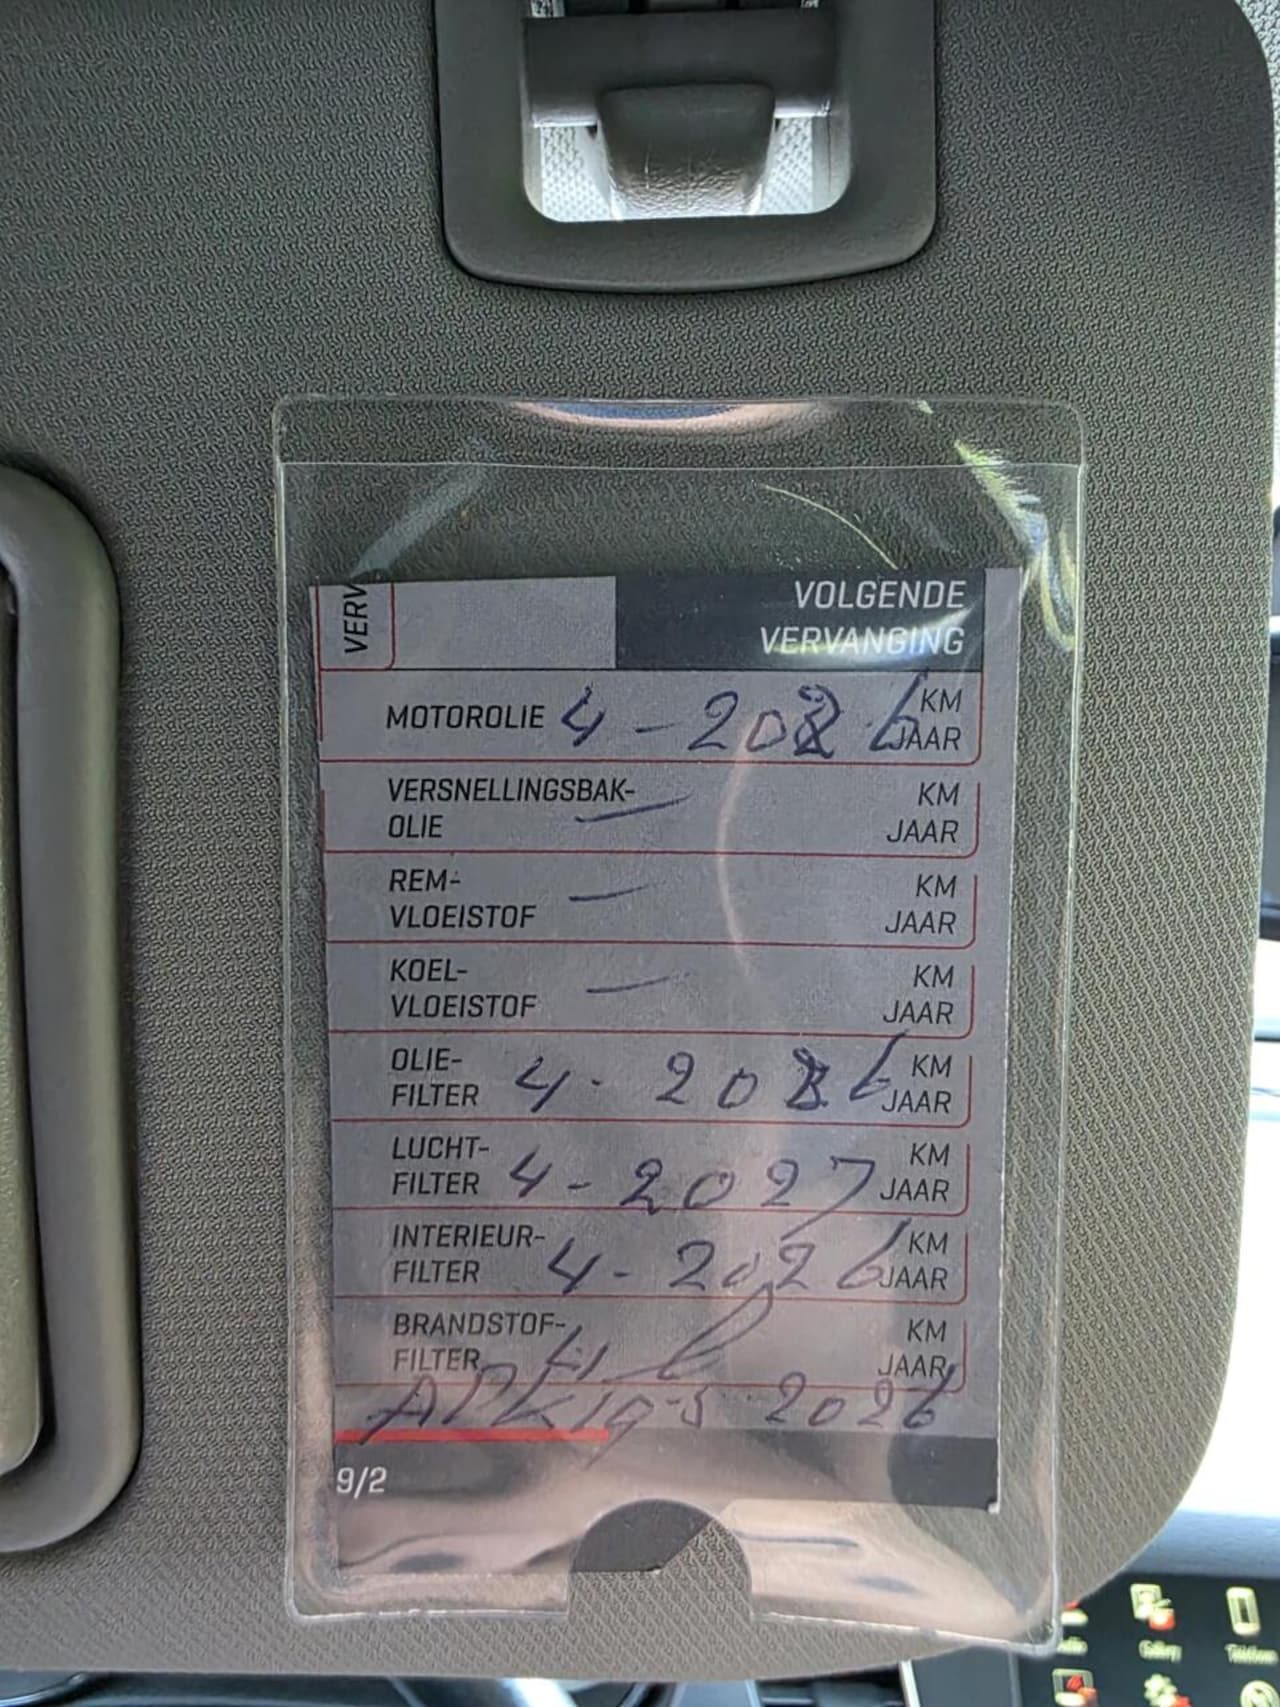 VERV
VOLGENDE
VERVANGING
MOTOROLIE 4 - 2026 KM
JAAR
VERSNELLINGSBAK- — KM
OLIE JAAR
REM- — KM
VLOEISTOF JAAR
KOEL- — KM
VLOEISTOF JAAR
OLIE- KM
FILTER 4 - 2026 JAAR
LUCHT- KM
FILTER 4 - 2027 JAAR
INTERIEUR- KM
FILTER 4 - 2026 JAAR
BRANDSTOF- KM
FILTER JAAR
APK 19-5 2026
9/2
Gallery